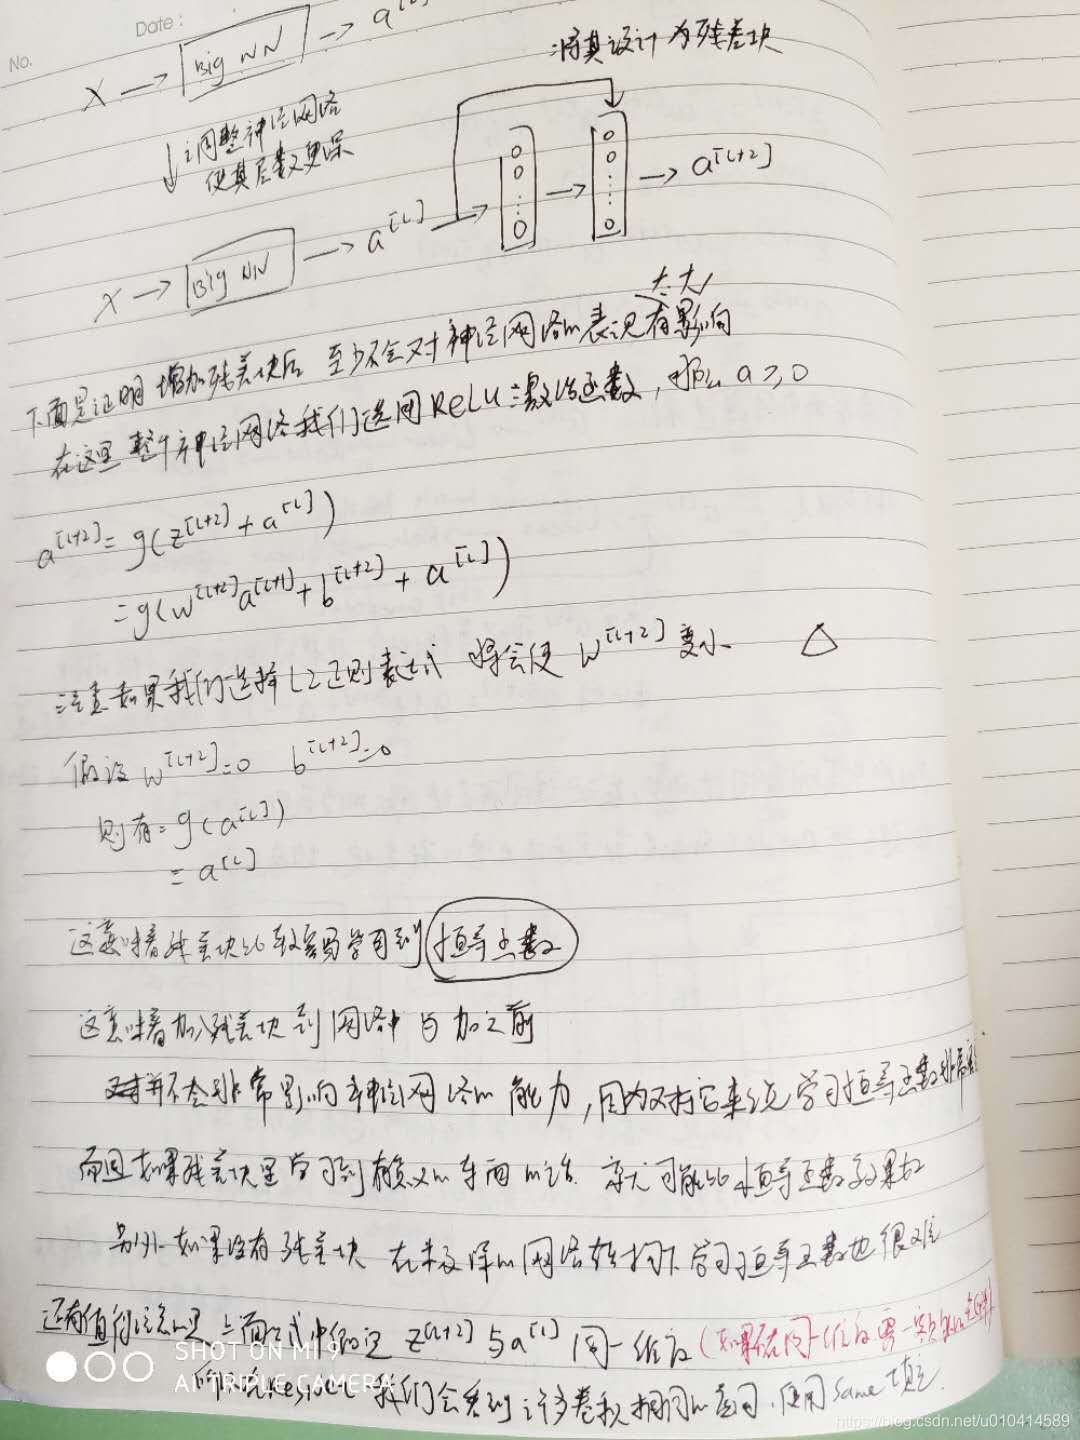 Date:
No.
X → Big NN → a
将其设计为残差块
↓ 调整神经网络
使其层数更深
X → Big NN → a[L] → → → a[L+2]
太大
下面是证明 增加残差块后 至少不会对神经网络的表现有影响
在这里 整个神经网络我们选用ReLU激活函数，那么 a≥0
a[L+2] = g(z[L+2] + a[L])
= g(W[L+2]a[L+1] + b[L+2] + a[L])
注意如果我们选择L2正则表达式 将会使 W[L+2] 变小 △
假设 W[L+2]=0 b[L+2]=0
则有= g(a[L])
= a[L]
这意味着残差块比较容易学习到恒等函数
这意味着加入残差块到网络中 与加之前
并不会非常影响神经网络的能力，因为对于它来说学习恒等函数非常
而且如果残差块里学习到有意义的东西的话 就可能比恒等函数效果好
另外如果没有残差块 在 深的网络 学习恒等函数也很难
还有值得注意的是 上面公式中假定 z[L+2] 与 a[L] 同一维度
所以在ResNet 我们会看到 许多卷积 相同的 使用same填充
SHOT ON MI 9
AI TRIPLE CAMERA
https://blog.csdn.net/u010414589